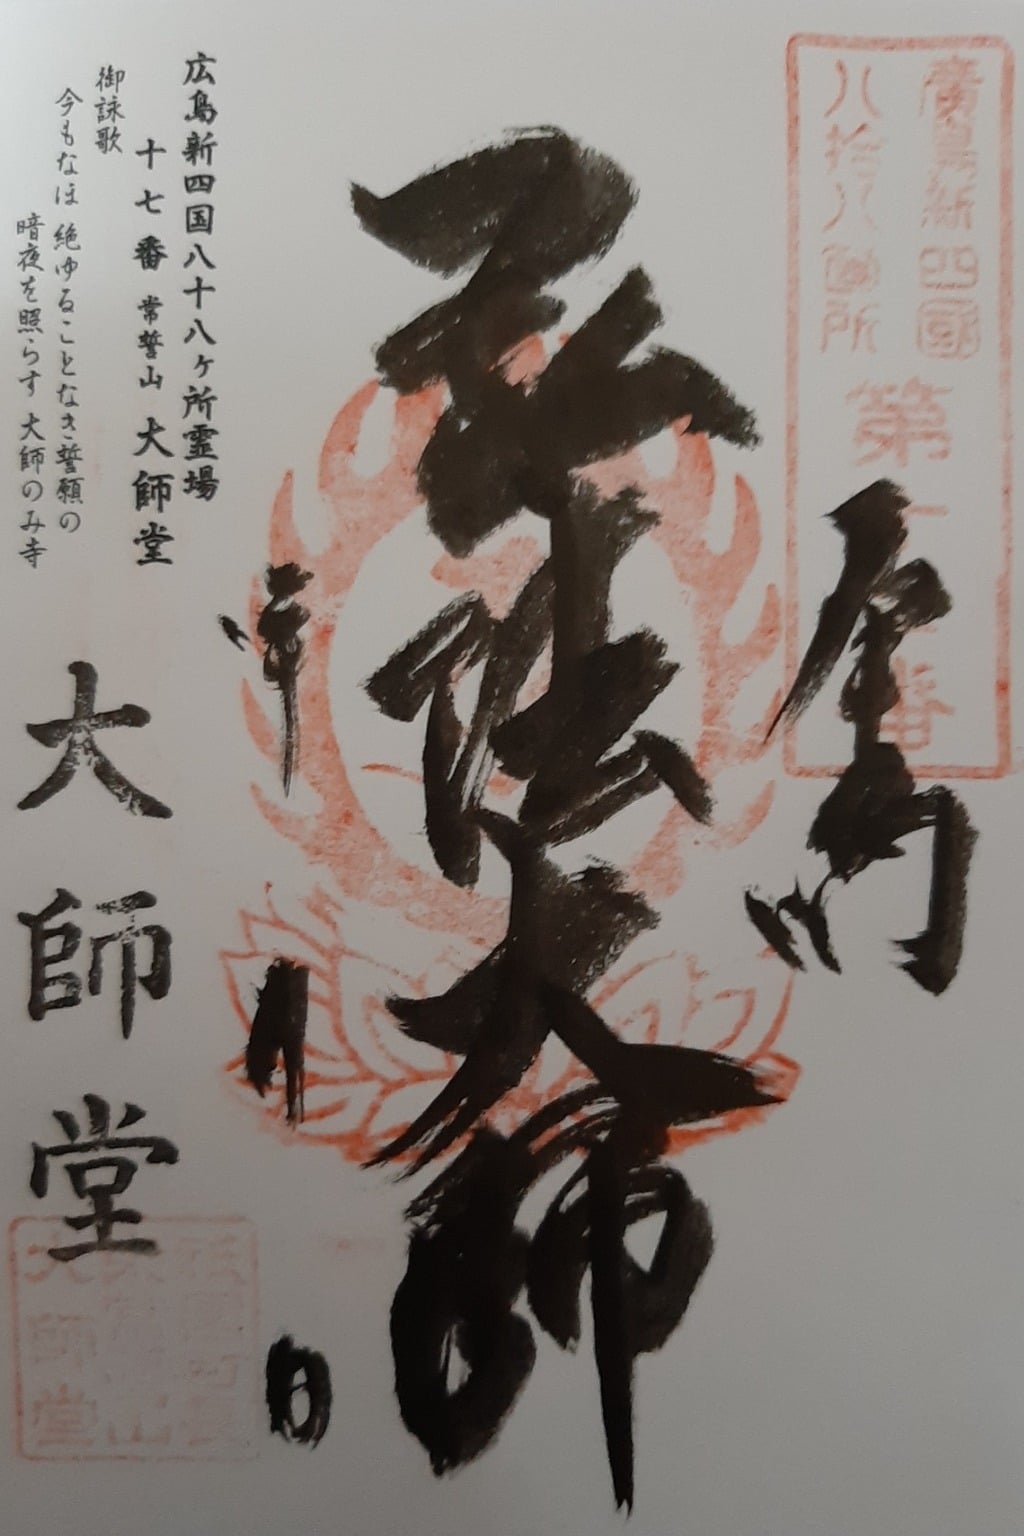 廣島新四國
八拾八個所
第十七番
奉拝
弘法大師
令和 年
月
日
広島新四国八十八ヶ所霊場
十七番 常誓山 大師堂
御詠歌
今もなほ 絶ゆることなき誓願の
暗夜を照らす大師のみ寺
大師堂
大師堂